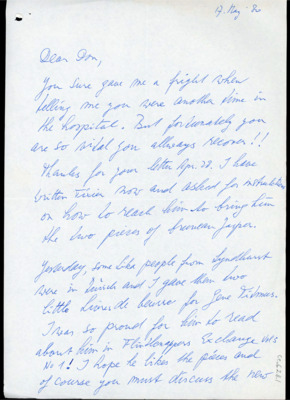 17. May '80
Dear Don,
You sure gave me a fright when
telling me you were another time in
the hospital. But fortunately you
are so vital you allways recover!!
Thanks for your letter Apr. 28. I have
written now and asked for instructions
on how to reach him to bring him
the two pieces of jasper.
Yesterday, some people from Lyndhurst
were in Zürich and I gave them two
little for Gene Tidmus.
I was so proud for him to read
about him in Exchange
No 1! I hope he likes the pieces and
of course you must discuss the new